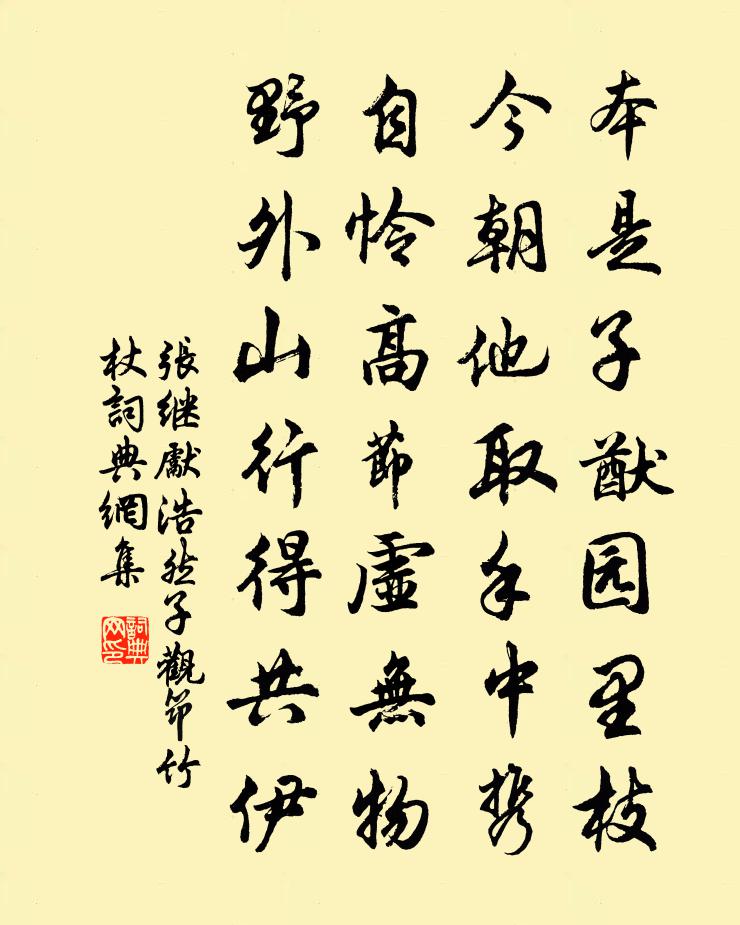 本是子猷园里枝
今朝他取手中携
自怜高節虚無物
野外山行得共伊
張继獻浩然子觀筇竹
杖詞典網集
詞典网印